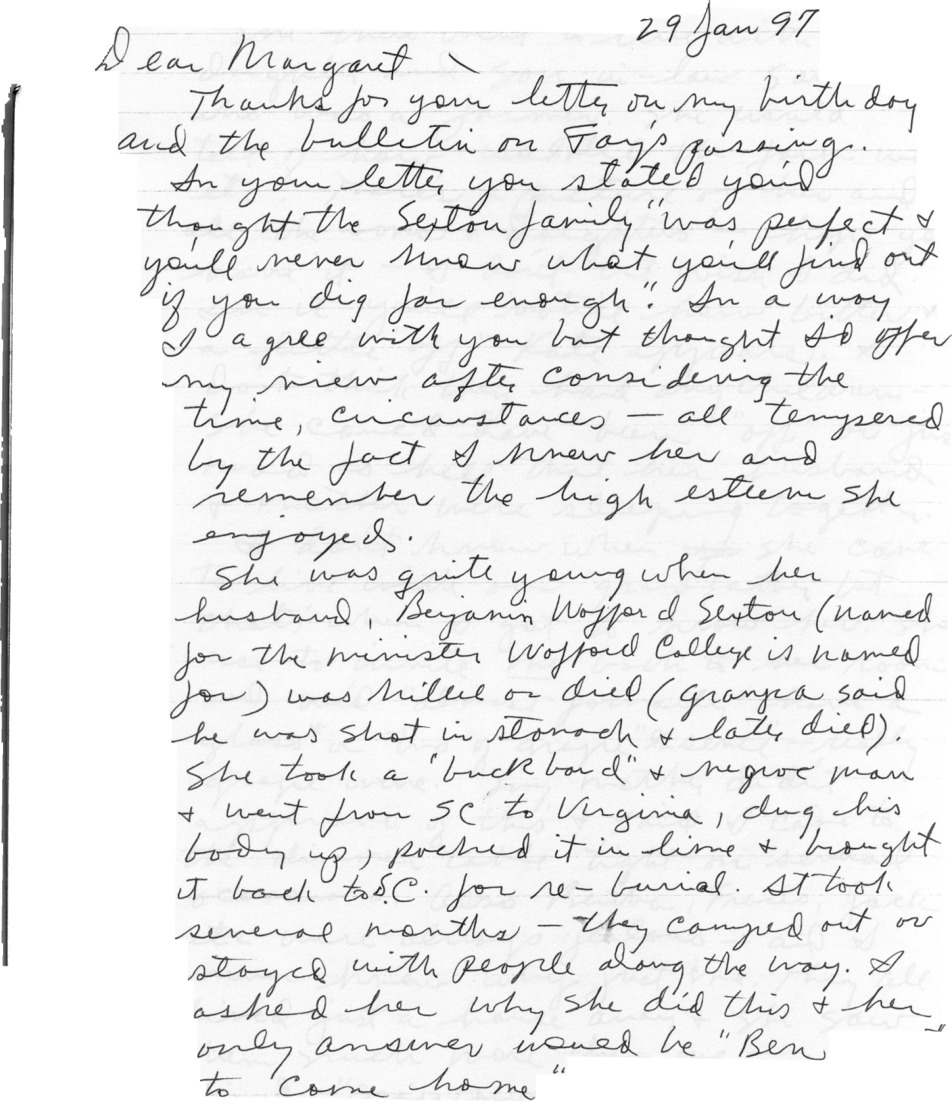 29 Jan 97
Dear Margaret
Thanks for your letter on my birthday
and the bulletin on Fay's passing.
In your letter, you stated you'd
thought the Sexton family "was perfect &
you'll never know what you'll find out
if you dig far enough". In a way
I agree with you but thought I'd offer
my view after considering the
time, circumstances — all tempered
by the fact I knew her and
remember the high esteem she
enjoyed.
She was quite young when her
husband, Benjamin Wofford Sexton (named
for the minister Wofford College is named
for) was killed or died (granpa said
he was shot in stomach & later died).
She took a "buckboard" & negroe man
& went from SC to Virginia, dug his
body up, packed it in lime & brought
it back to S.C. for re-burial. It took
several months — they camped out or
stayed with people along the way. I
asked her why she did this & her
only answer would be "Ben
to come home"